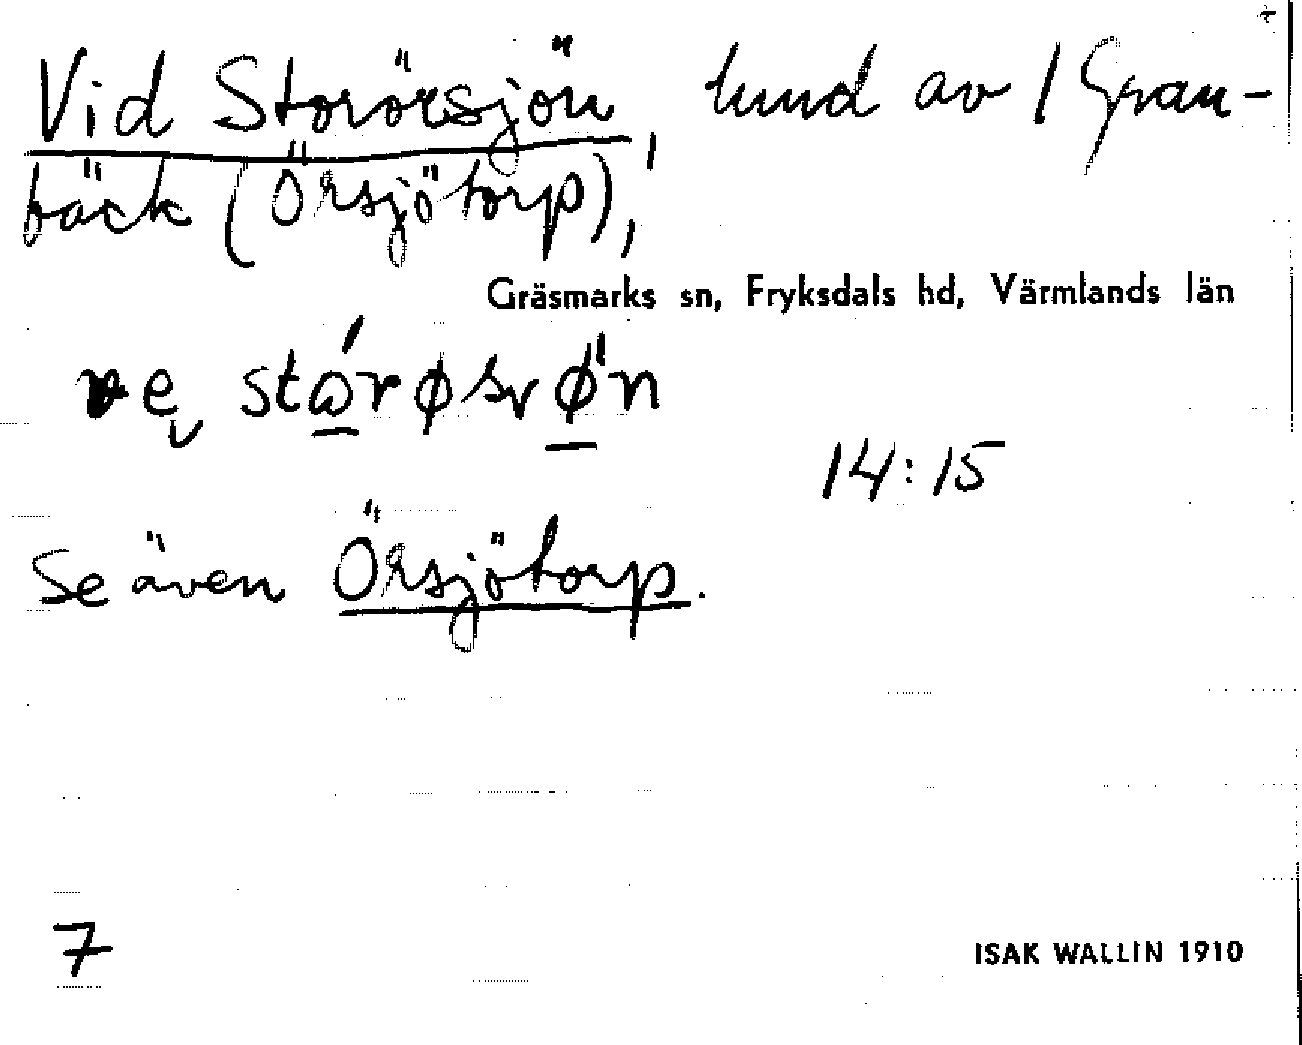 Vid Storörsjön, lund av 1 Gran-
bäck (Örsjötorp),
Gräsmarks sn, Fryksdals hd, Värmlands län
14:15
Se även Örsjötorp.
7
ISAK WALLIN 1910